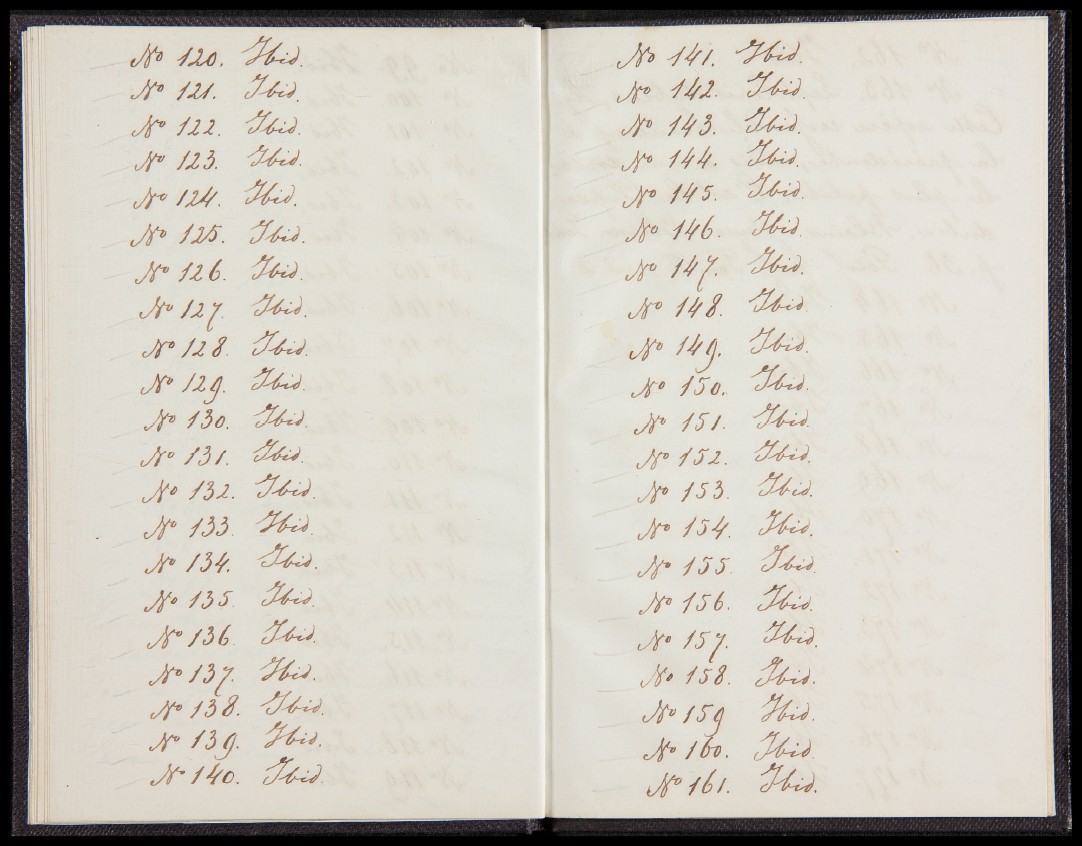 No 120. Ibid.
No 121. Ibid.
No 122. Ibid.
No 123. Ibid.
No 124. Ibid.
No 125. Ibid.
No 126. Ibid.
No 127. Ibid.
No 128. Ibid.
No 129. Ibid.
No 130. Ibid.
No 131. Ibid.
No 132. Ibid.
No 133. Ibid.
No 134. Ibid.
No 135. Ibid.
No 136. Ibid.
No 137. Ibid.
No 138. Ibid.
No 139. Ibid.
No 140. Ibid.
No 141. Ibid.
No 142. Ibid.
No 143. Ibid.
No 144. Ibid.
No 145. Ibid.
No 146. Ibid.
No 147. Ibid.
No 148. Ibid.
No 149. Ibid.
No 150. Ibid.
No 151. Ibid.
No 152. Ibid.
No 153. Ibid.
No 154. Ibid.
No 155. Ibid.
No 156. Ibid.
No 157. Ibid.
No 158. Ibid.
No 159 Ibid.
No 160. Ibid.
No 161. Ibid.